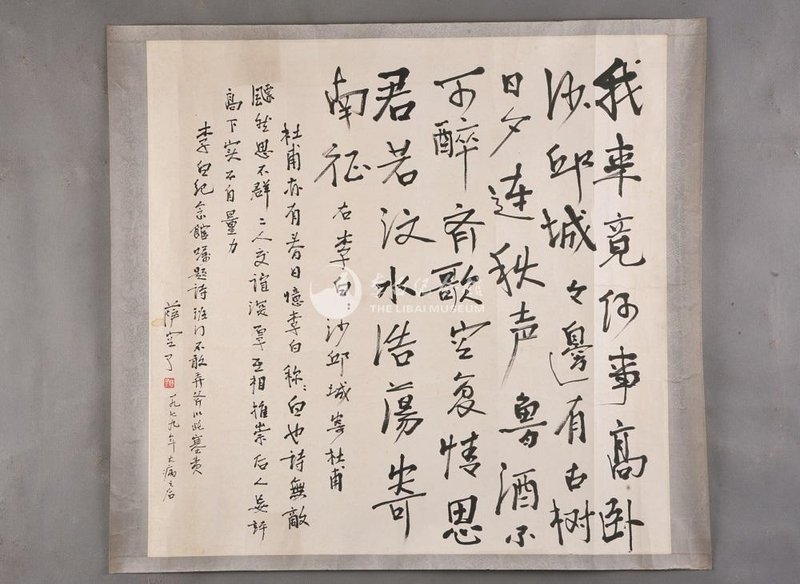 我来竟何事高卧
沙邱城々邊有古树
日夕連秋声魯酒不
可醉齐歌空复情思
君若汶水浩荡寄
南征 右李白:沙邱城寄杜甫
杜甫亦有春日憶李白称:白也詩無敵
飄然思不群 二人交谊深厚互相推崇后人妄評
高下实不自量力
李白纪念館嘱题詩班门不敢弄斧以此塞责
薩空了 一九七九年大病之后
李白纪念馆
THE LIBAI MUSEUM